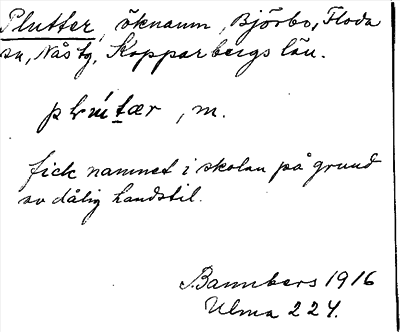 Plutter, öknamn, Björbo, Floda
sn, Nås tg, Kopparbergs län.
, m.
fick namnet i skolan på grund
av dålig handstil.
Bannbers 1916
Ulma 224.